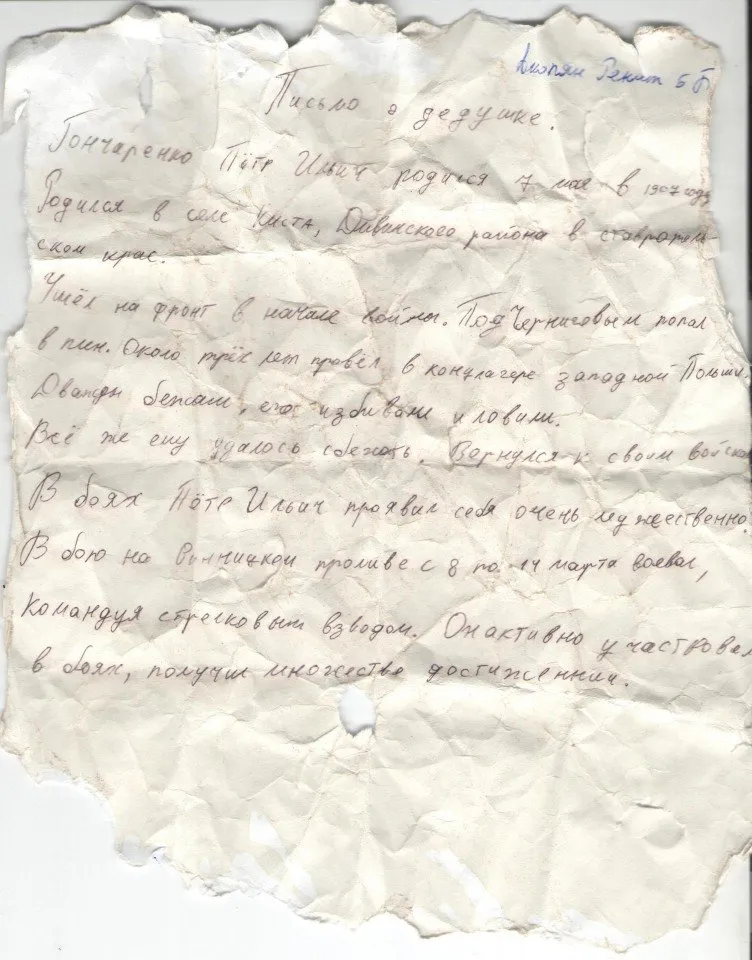 Акопян Ренат 5 Б
Письмо о дедушке.
Гончаренко Пётр Ильич родился 7 мая в 1907 году
Родился в селе Киста, Дивинского района в ставрополь-
ском крае.
Ушёл на фронт в начале войны. Под Черниговым попал
в плен. Около трёх лет провёл в концлагере западной Польши.
Дважды бежал, его избивали и ловили.
Всё же ему удалось сбежать. Вернулся к своим войскам
В боях Пётр Ильич проявил себя очень мужественно.
В бою на проливе с 8 по 14 марта воевал,
командуя стрелковым взводом. Он активно участвовал
в боях, получил множество достижении.